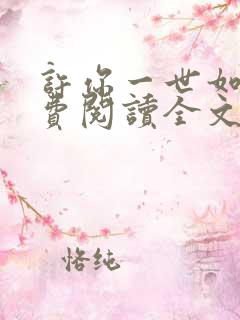 許你一世如
費閱讀全文
恪純